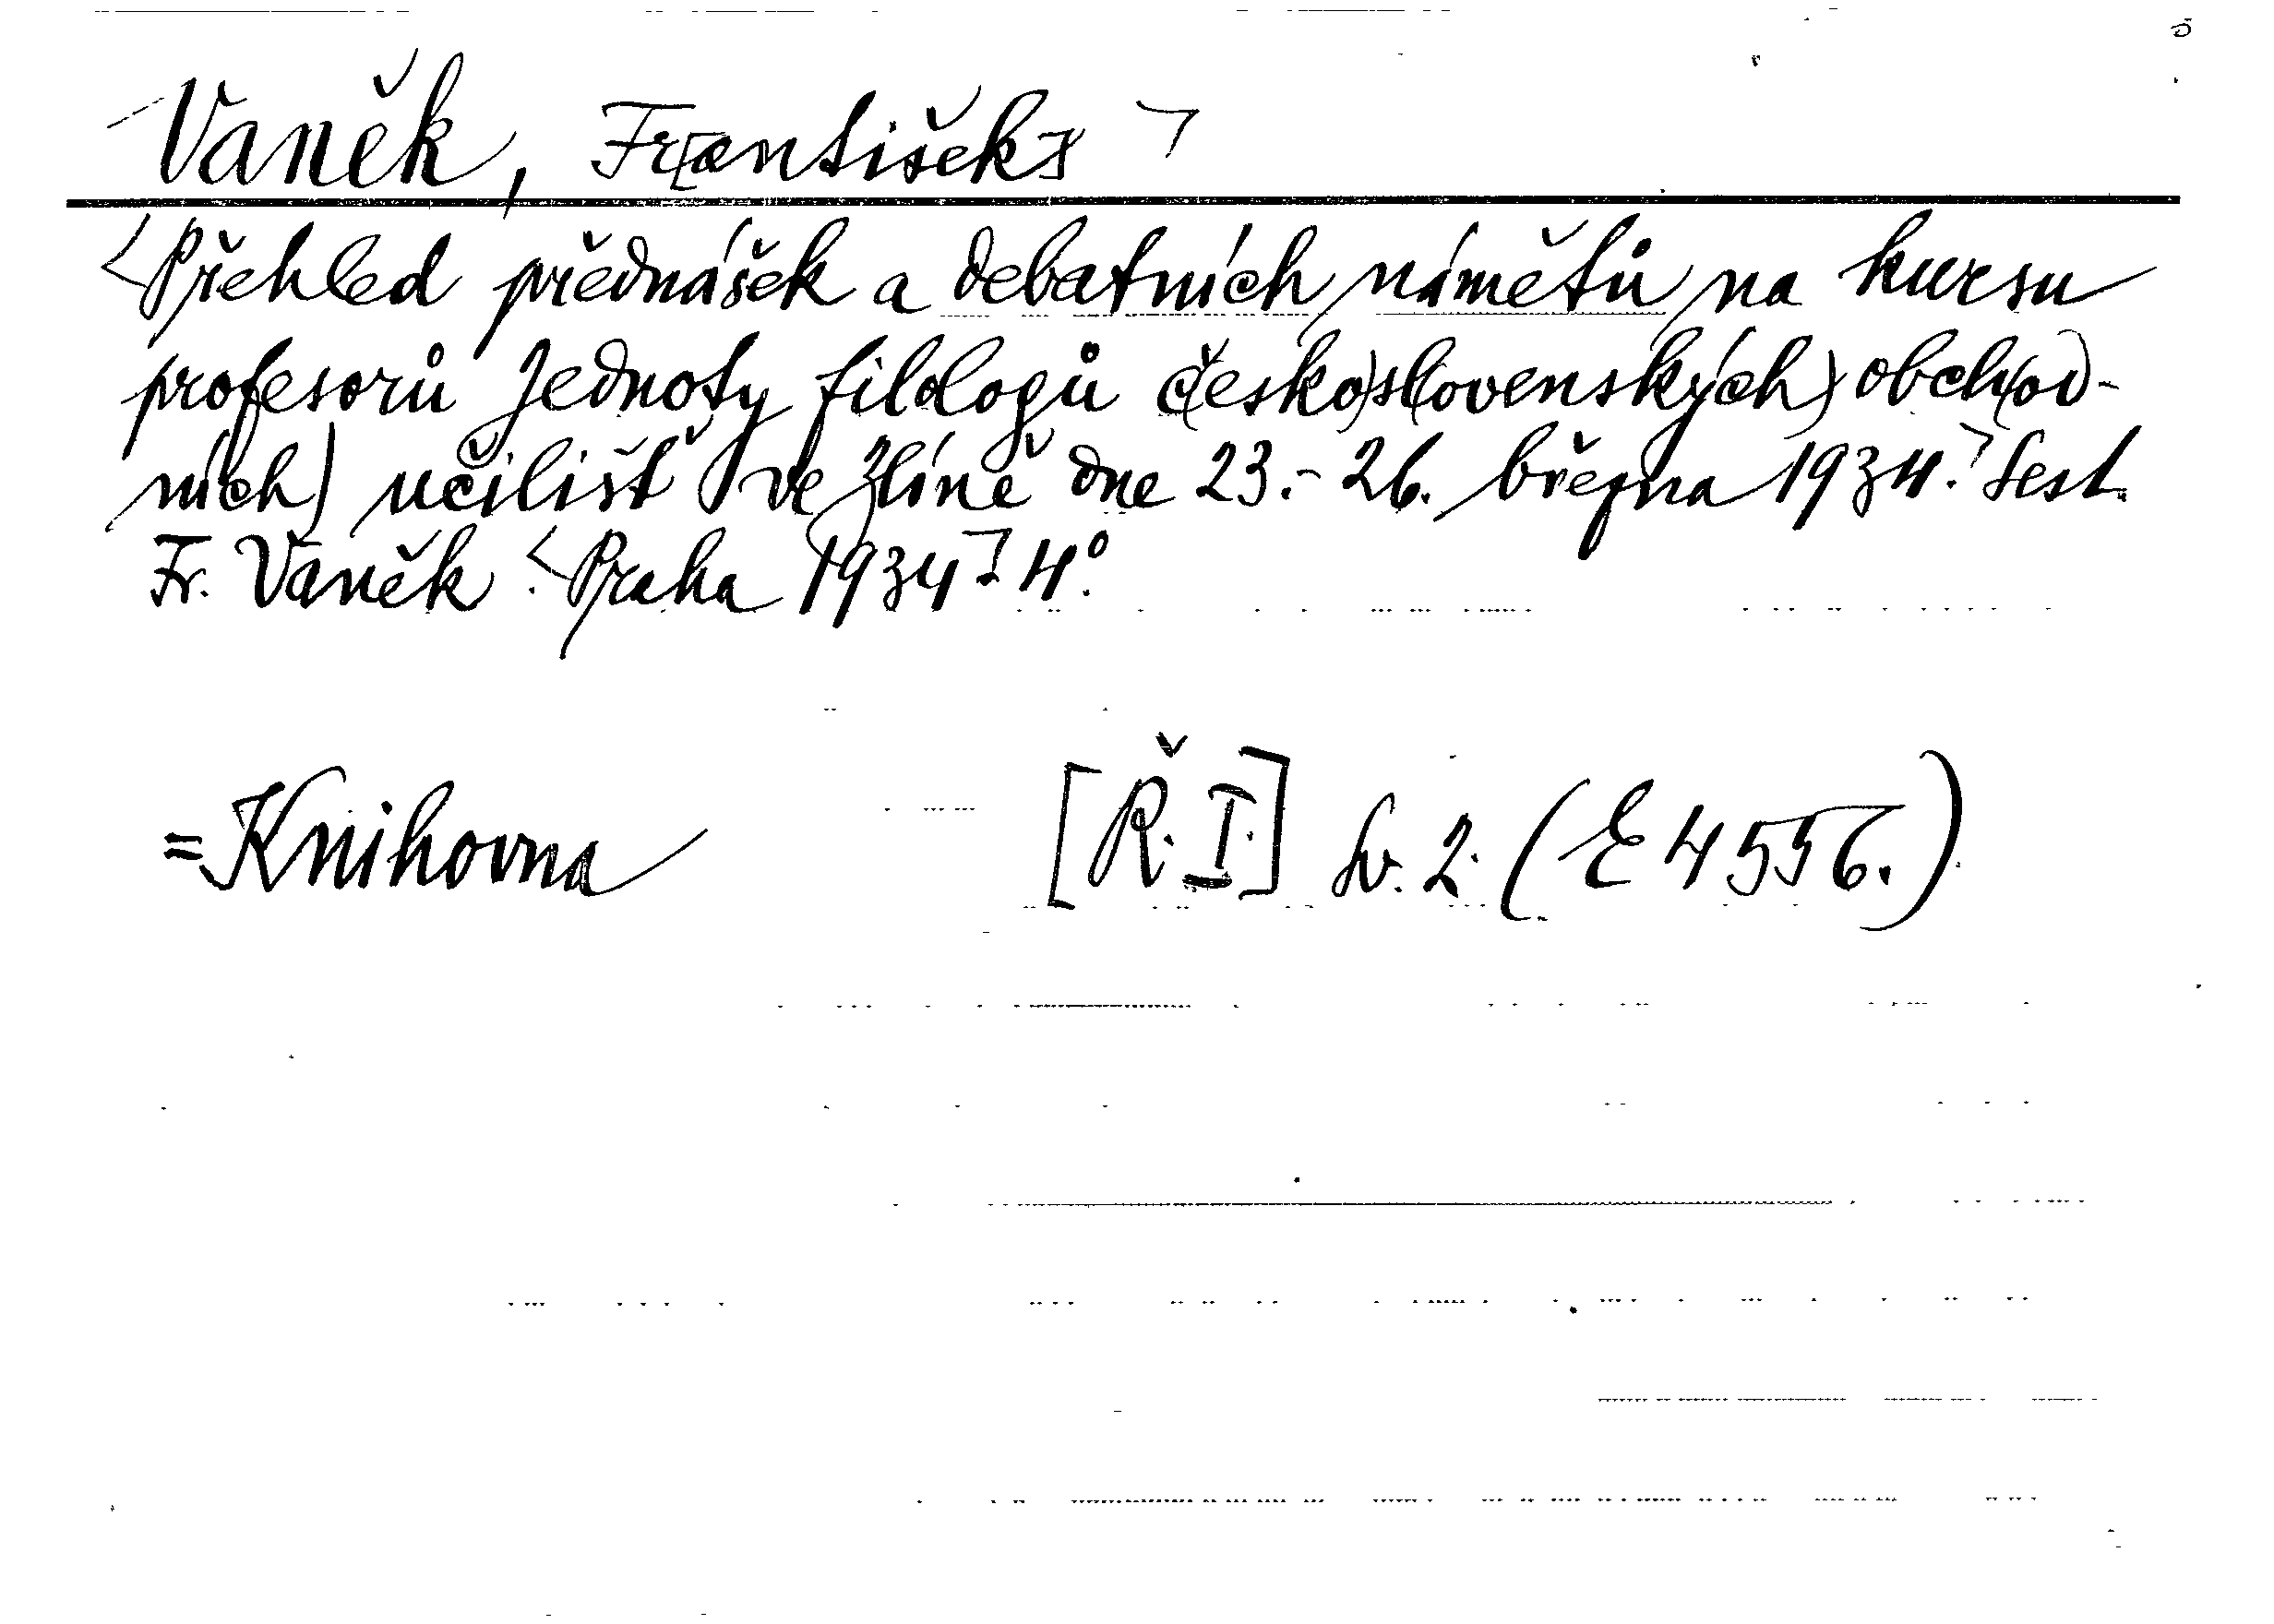 Vaněk, Fr[antišek]
<Přehled přednášek a debatních námětů na kursu
profesorů Jednoty filologů č(esko)sl(ovenských) obch(od-
ních) učilišť ve Zlíně dne 23.-26. března 1934.> Sest.
Fr. Vaněk. <Praha 1934> 4°.
=Knihovna [Ř. I.] sv. 2. (E 4556.)